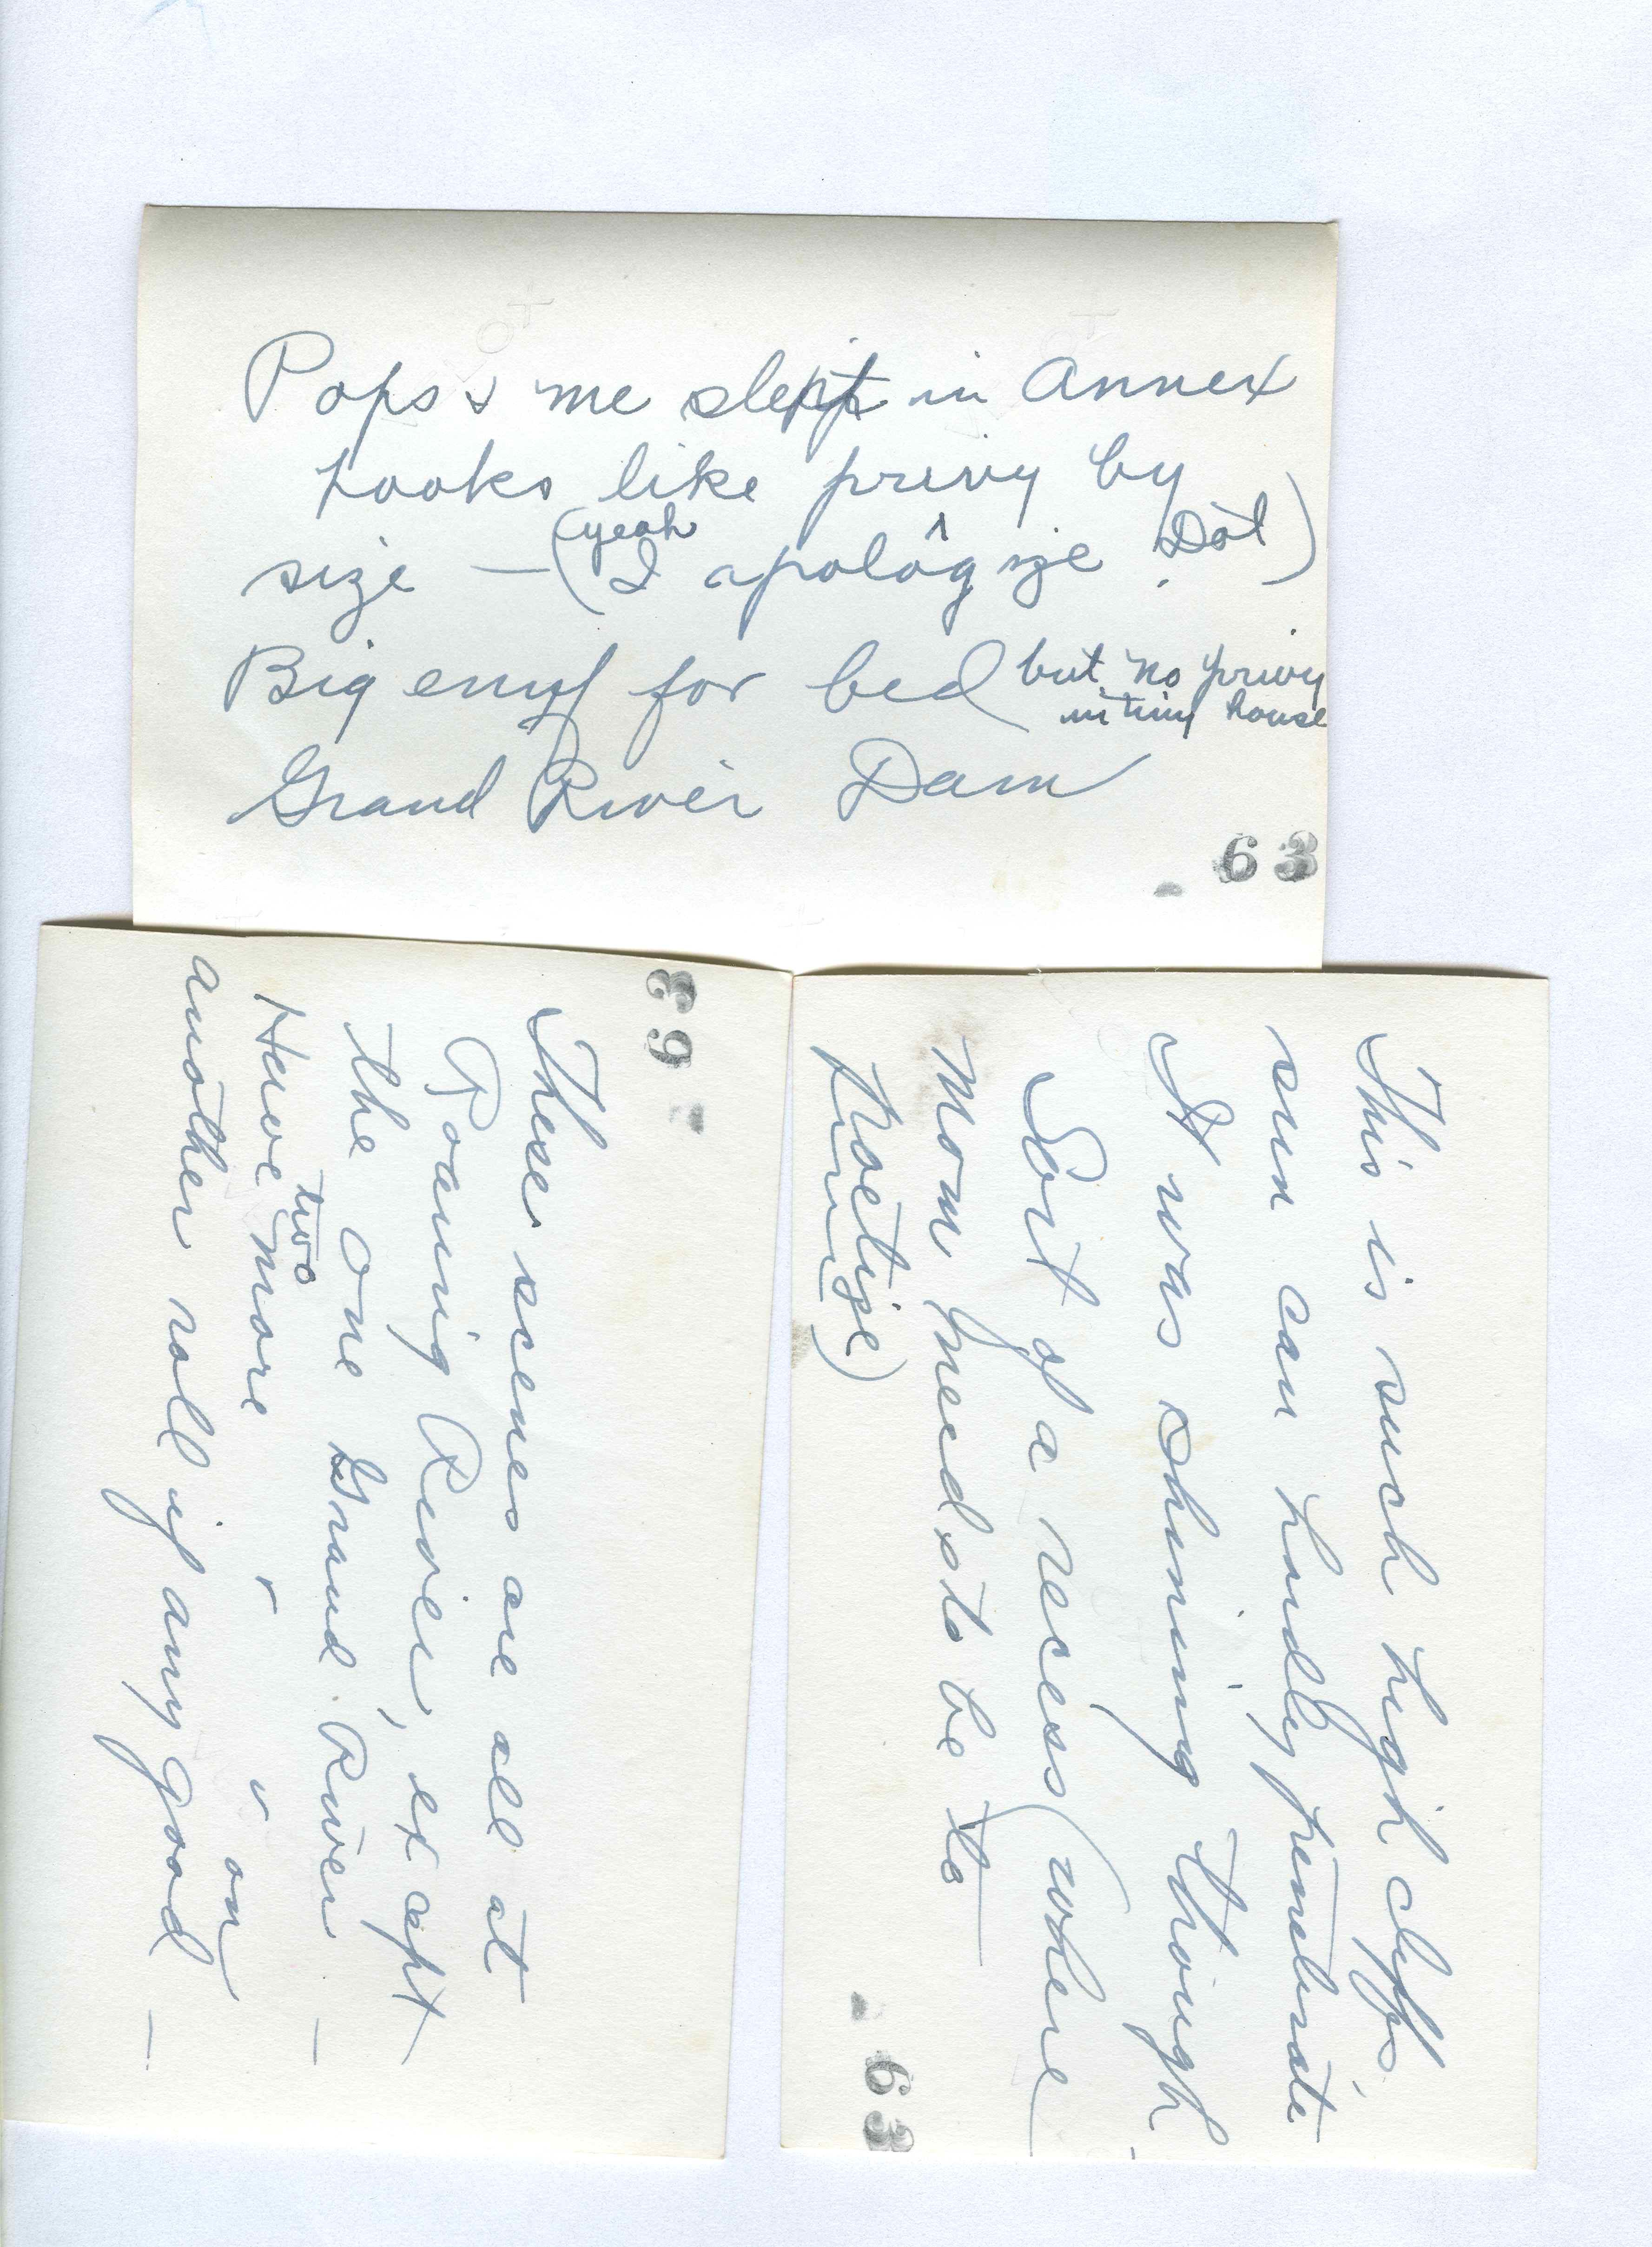 Pops & me slept in Annex
Looks like privy by
size — (yeah I apologize Dot)
Big enuf for bed but no privy
in tiny house
Grand River Dam
- 63
These scenes are all at
Roaring River, except
the one Grand River —
Have two more " " on
another roll if any good —
63 -
This is such high cliff,
sun can hardly penetrate
It was shining though.
Sort of a recess (where
Mom (need sto be to
poetize)
- 63